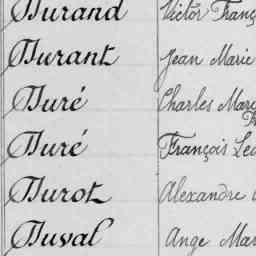 Durand Victor Franç
Durant Jean Marie
Duré Charles Marc
Duré François Leo
Durot Alexandre
Duval Ange Mar